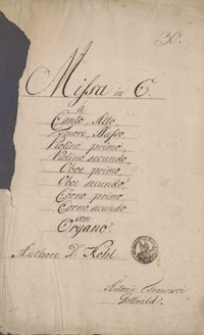 Missa in C.
á
Canto, Alto,
Tenore, Basso,
Violino primo,
Violino secundo,
Oboe primo,
Oboe secundo,
Corno primo,
Corno secundo
con
Organo.
Authore D. Kohl
Antonii Francisci